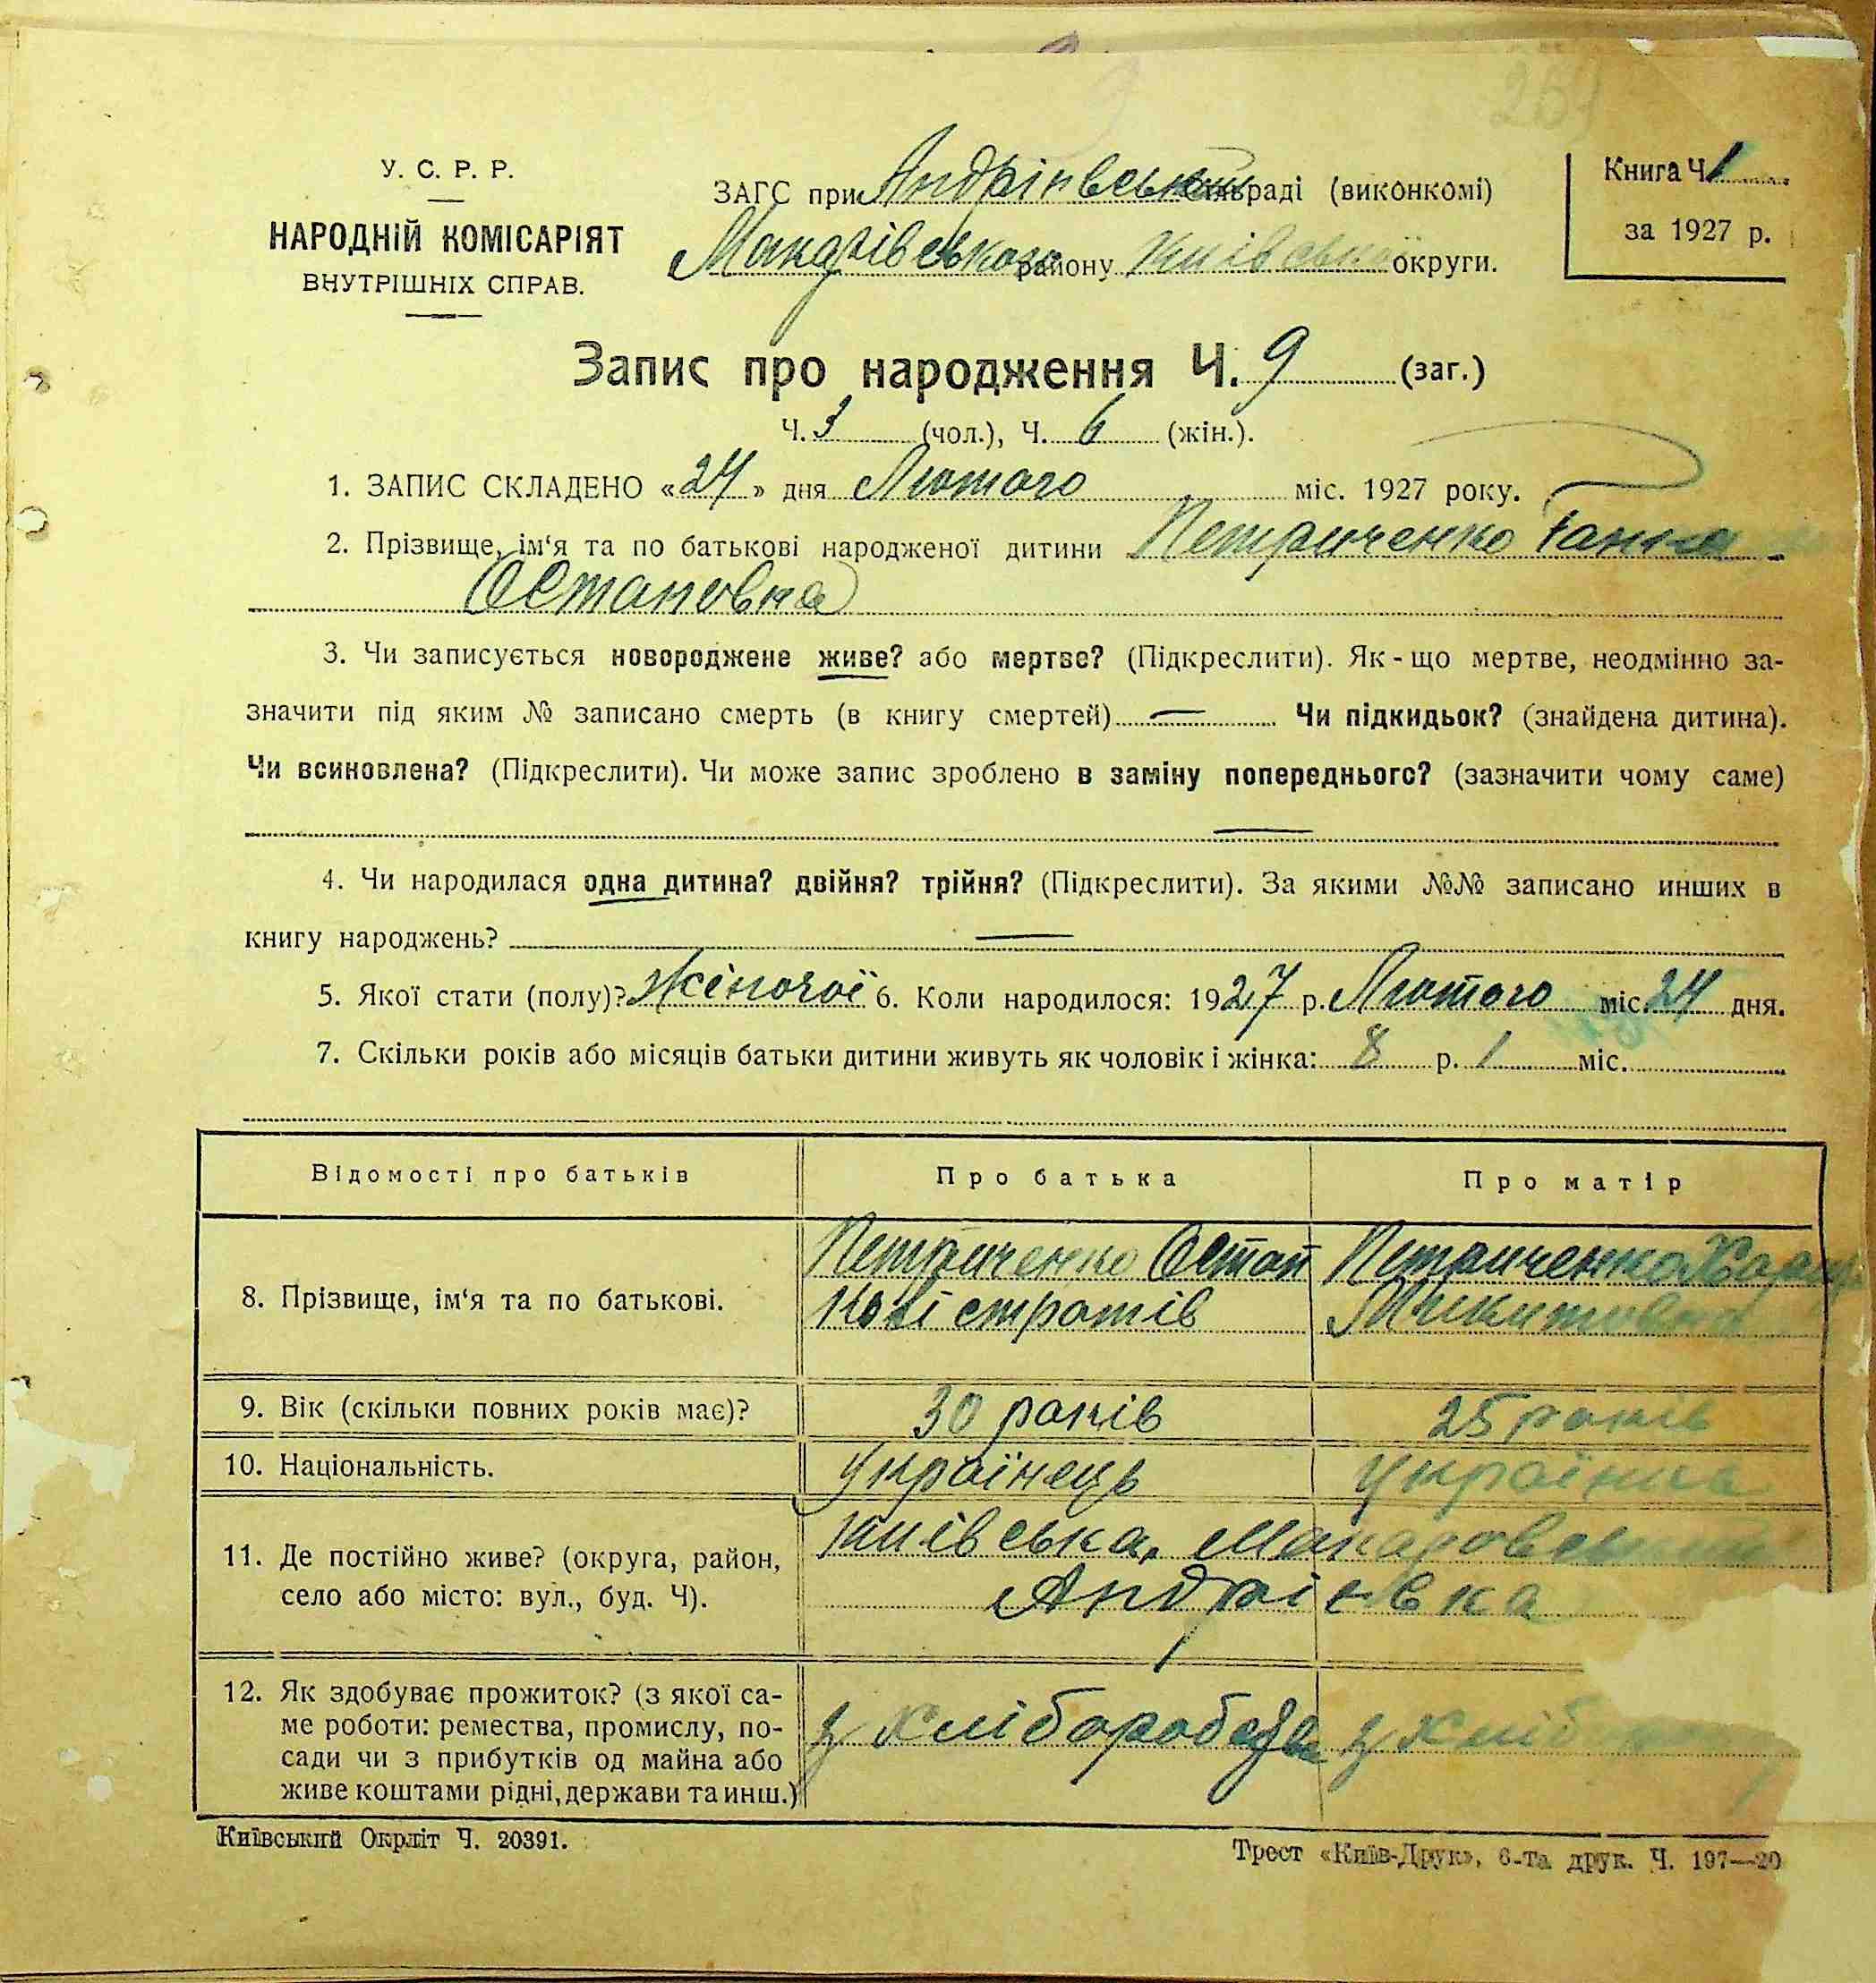 259
У. С. Р. Р.
НАРОДНІЙ КОМІСАРІЯТ
ВНУТРІШНІХ СПРАВ.
ЗАГС при Андріївській сільраді (виконкомі)
Макарівського району Київської округи.
Книга Ч. 1
за 1927 р.
Запис про народження Ч. 9 (заг.)
Ч. 3 (чол.), Ч. 6 (жін.).
1. ЗАПИС СКЛАДЕНО «24» дня Лютого міс. 1927 року.
2. Прізвище, ім‘я та по батькові народженої дитини Петриченко Ганна
Остаповна
3. Чи записується новороджене живе? або мертве? (Підкреслити). Як-що мертве, неодмінно за-
значити під яким № записано смерть (в книгу смертей) — Чи підкидьок? (знайдена дитина).
Чи всиновлена? (Підкреслити). Чи може запис зроблено в заміну попереднього? (зазначити чому саме)
—
4. Чи народилася одна дитина? двійня? трійня? (Підкреслити). За якими №№ записано инших в
книгу народжень? —
5. Якої стати (полу)? Жіночої 6. Коли народилося: 1927 р. Лютого міс. 24 дня.
7. Скільки років або місяців батьки дитини живуть як чоловік і жінка: 8 р. 1 міс.
Відомості про батьків Про батька Про матір
8. Прізвище, ім‘я та по батькові. Петриченко Остап Петриченко
Микитовна
9. Вік (скільки повних років має)? 30 років 25 років
10. Національність. Українець Українка
11. Де постійно живе? (округа, район,
село або місто: вул., буд. Ч).
Київська, Макаровський
Андрієвка
12. Як здобуває прожиток? (з якої са-
ме роботи: ремества, промислу, по-
сади чи з прибутків од майна або
живе коштами рідні, держави та инш.)
з хліборобства з хліб
Київський Окрліт Ч. 20391.
Трест «Київ-Друк», 6-та друк. Ч. 197—20